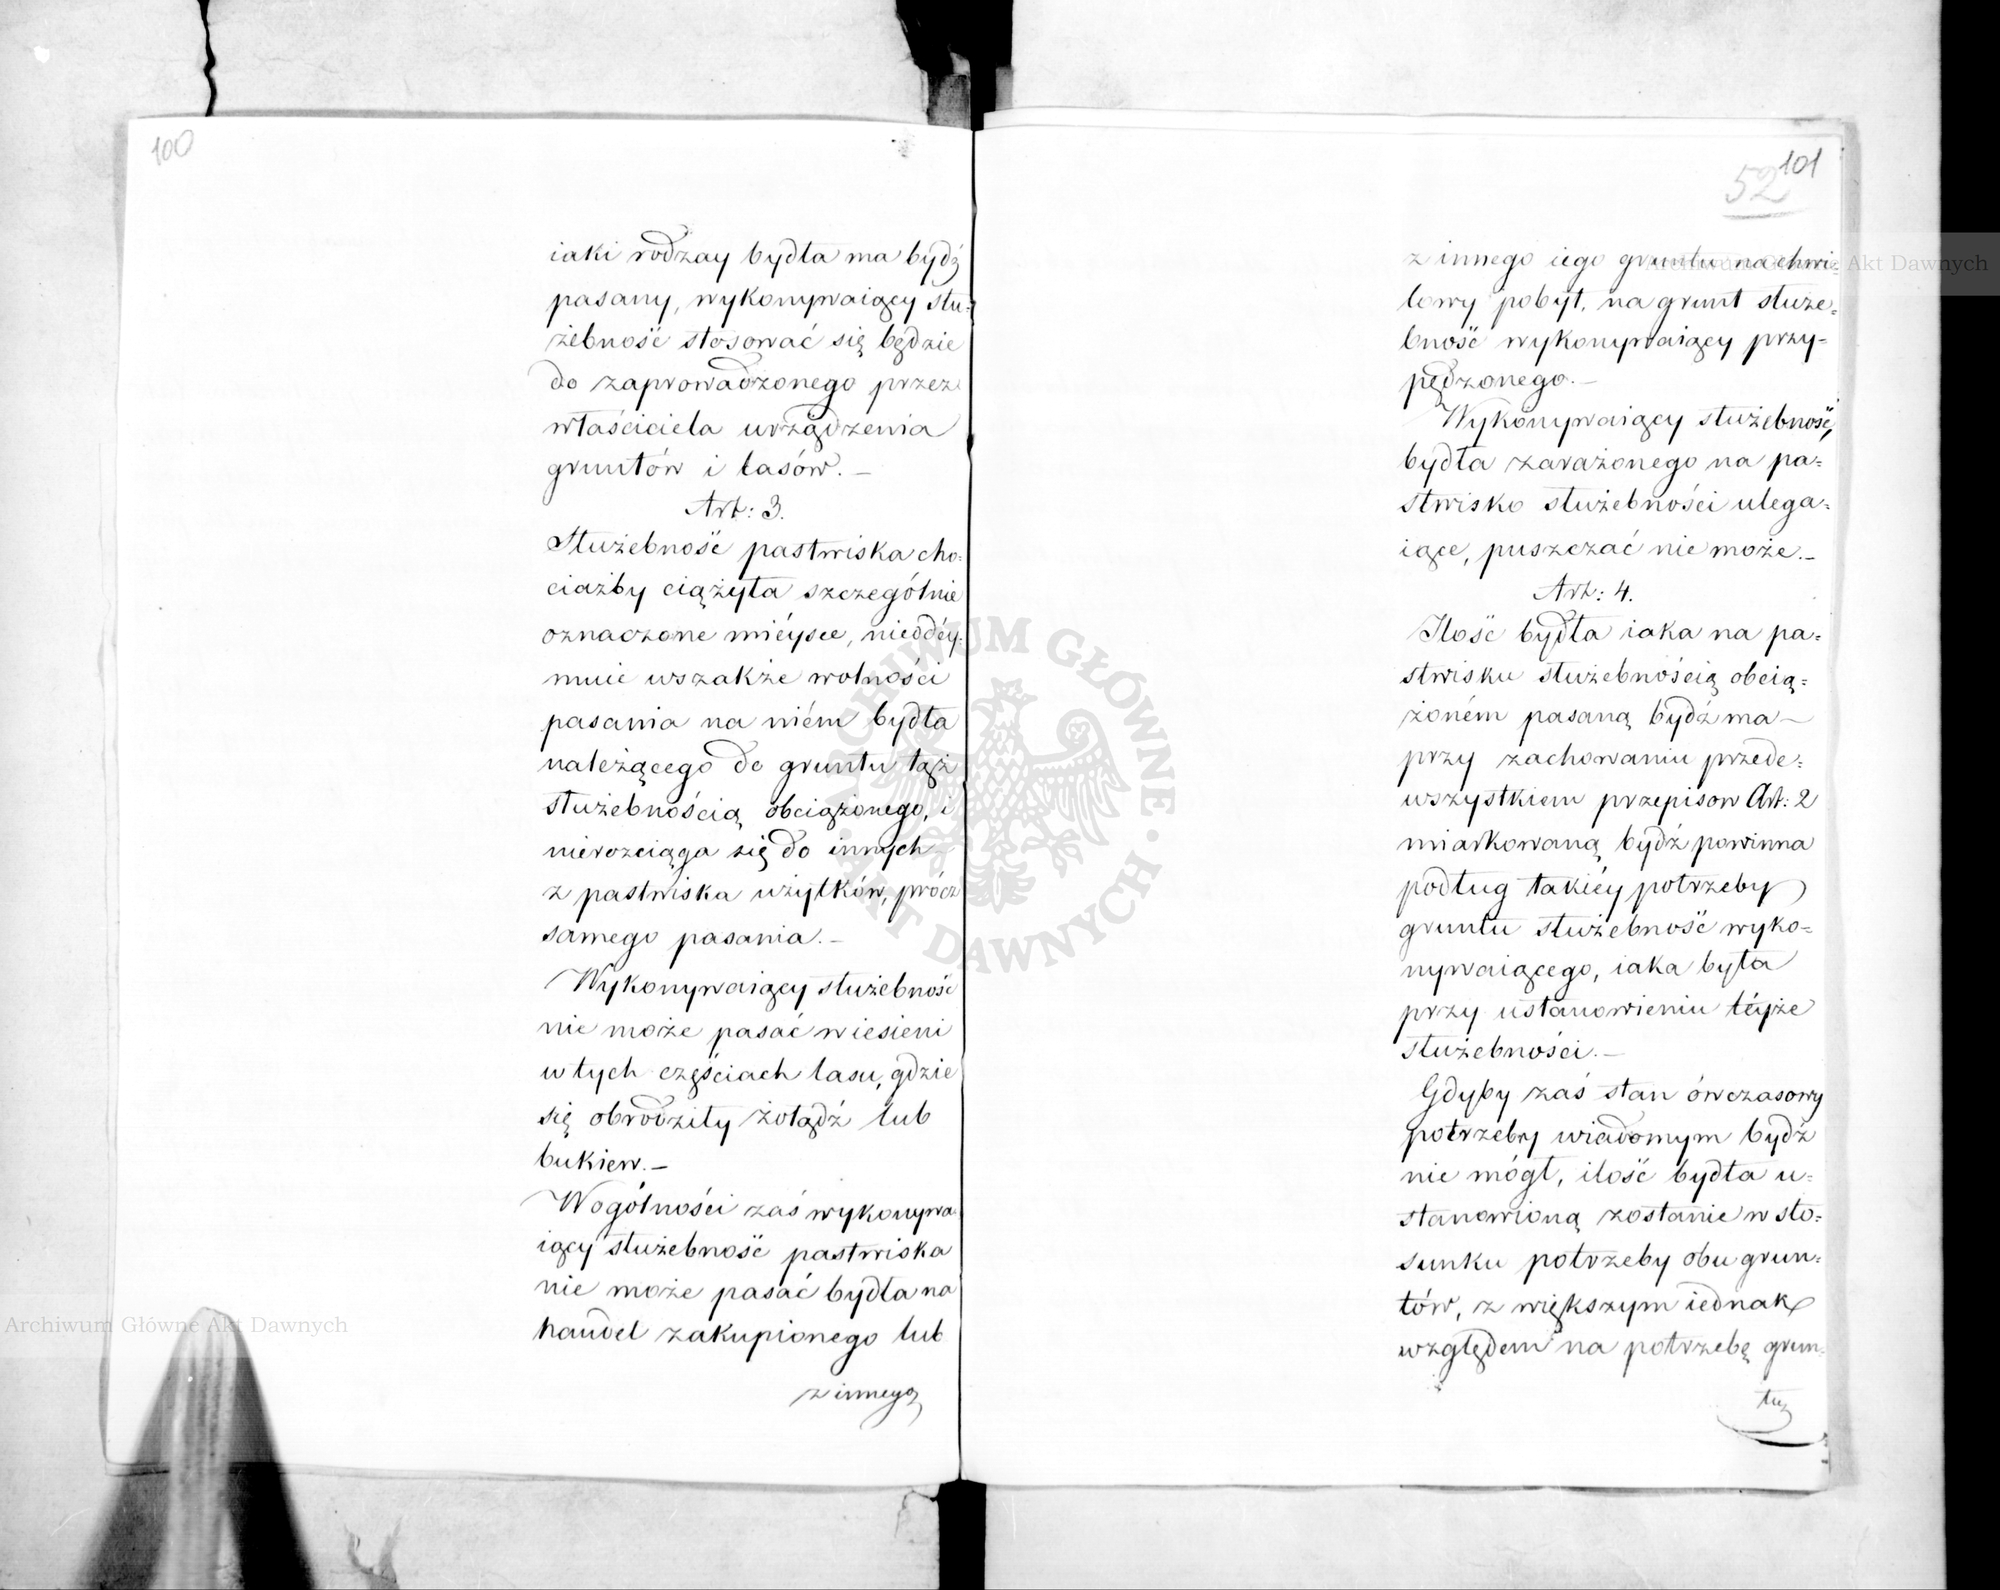 100
iaki rodzay bydła ma bydź
pasany, wykonywaiący słu=
żebność stosować się będzie
do zaprowadzonego przez
właściciela urządzenia
gruntów i lasów. —
Art: 3.
Służebność pastwiska cho=
ciażby ciążyła szczególnie
oznaczone miéysce, nieodéy=
muie wszakże wolności
pasania na niém bydła
należącego do gruntu tąż
służebnością obciążonego, i
nierozciąga się do innych
z pastwiska użytków, prócz
samego pasania. —
Wykonywaiący służebność
nie może pasać w iesieni
w tych częściach lasu, gdzie
się obrodziły żołądź lub
bukiew. —
Wogólności zaś wykonywa
iący służebność pastwiska
nie może pasać bydła na
handel zakupionego lub
z innego
101
52
z innego iego gruntu na chwi=
lowy pobyt, na grunt służe=
bność wykonywaiący przy-
pędzonego. —
Wykonywaiący służebność,
bydła zarażonego na pa=
stwisko służebności ulega=
iące, puszczać nie może. —
Art: 4.
Ilość bydła iaka na pa=
stwisku służebnością obcią=
żoném pasaną bydź ma —
przy zachowaniu przede=
wszystkiem przepisow Art: 2
miarkowaną bydź powinna
podług takiéy potrzeby
gruntu służebność wyko=
nywaiącego, iaka była
przy ustanowieniu téyże
służebności. —
Gdyby zaś stan ówczasowy
potrzeby wiadomym bydź
nie mógł, ilość bydła u=
stanowioną zostanie w sto=
sunku potrzeby obu grun=
tów, z większym iednak
względem na potrzebę grun=
tu
Archiwum Główne Akt Dawnych
Archiwum Główne Akt Dawnych
ARCHIWUM GŁÓWNE · AKT DAWNYCH ·